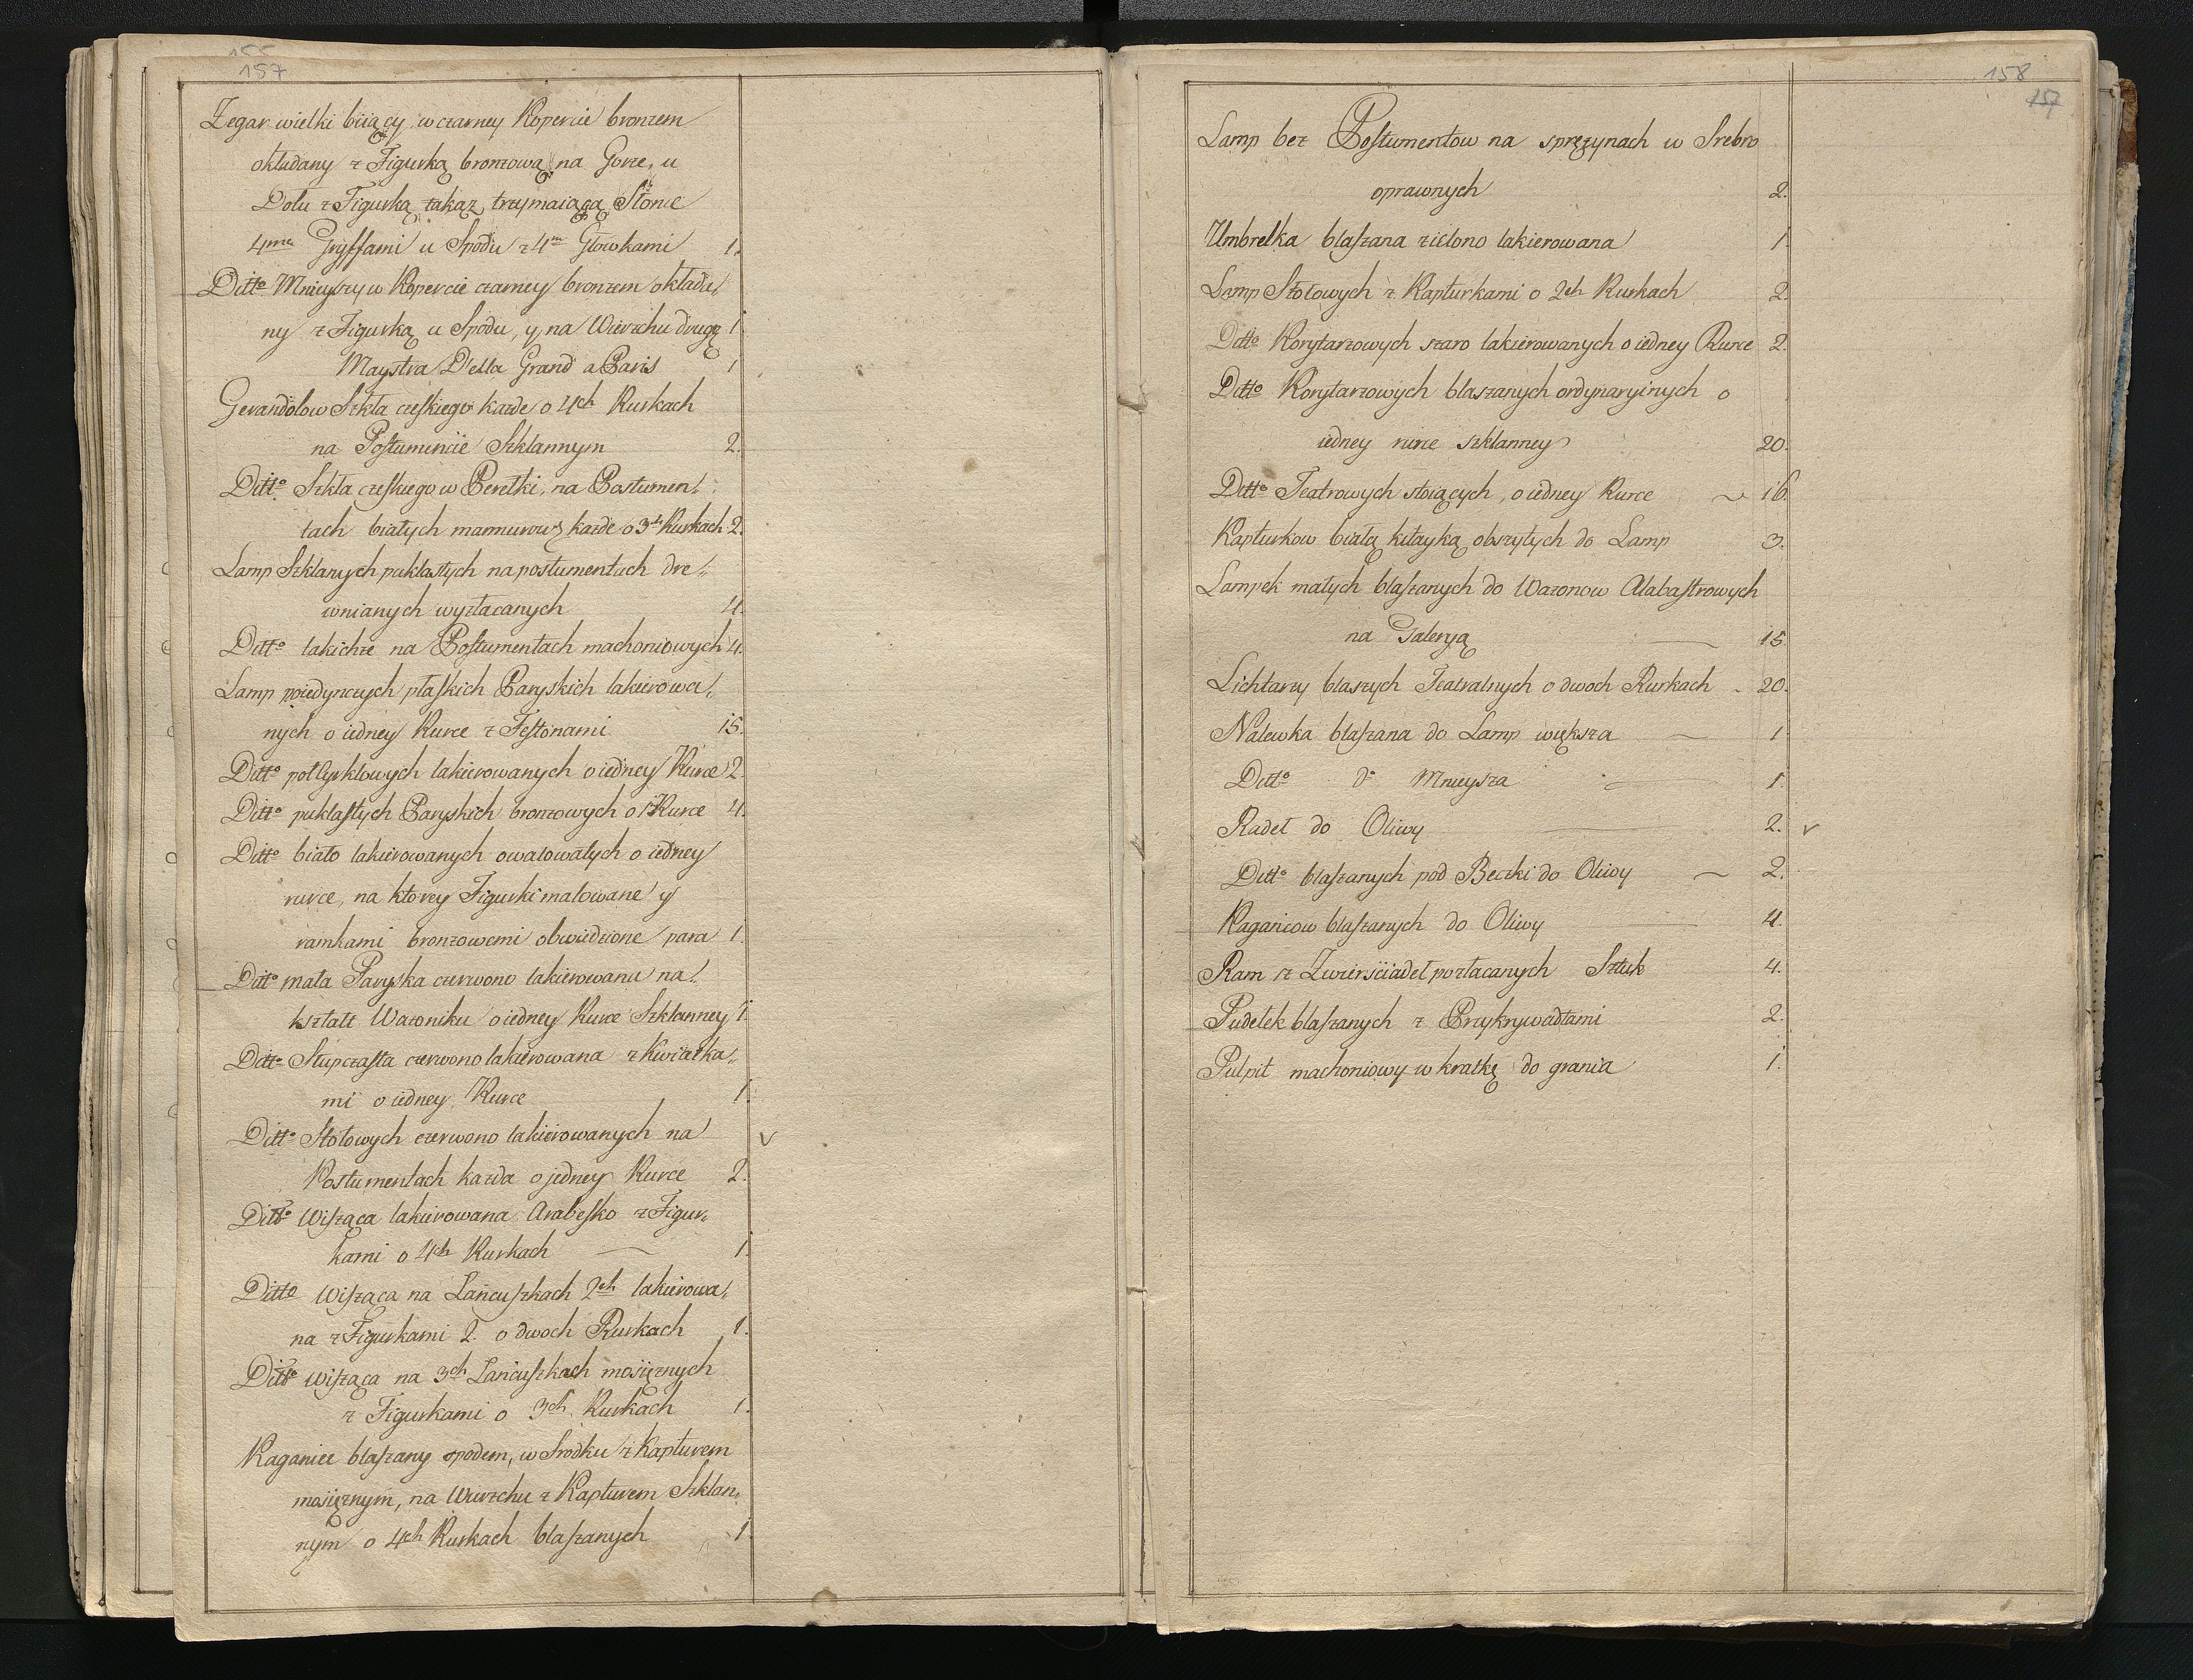 155
157
Zegar wielki biiący w czarney Kopercie bronzem
okładany z Figurką bronzową na Gorze, u
Dołu z Figurką takąż trzymaiącą Słonce
4ma Gryffami u Spodu z 4ma Głowkami 1.
Ditto Mnieyszy w Kopercie czarney bronzem okłada„
ny z Figurką u Spodu, y na Wierzchu drugą 1
Maystra Della Grand a Paris 1
Gerandolow Szkła czeskiego każde o 4ch Rurkach
na Postumencie Szklannym 2.
Ditto Szkła czeskiego w Perełki, na Postumen„
tach białych marmurow: każde o 3ch Rurkach 2.
Lamp Szklanych puklastych na postumentach dre„
wnianych wyzłacanych 4.
Ditto takichże na Postumentach machoniowych 4.
Lamp poiedynczych płaskich Paryskich lakierowa„
nych o iedney Rurce z Festonami 15.
Ditto połcyrklowych lakierowanych o iedney Rurce 2.
Ditto puklastych Paryskich bronzowych o 1 Rurce 4.
Ditto biało lakierowanych owalowatych o iedney
rurce, na ktorey Figurki malowane y
ramkami bronzowemi obwiedzione para 1.
Ditto mała Paryska czerwono lakierowana na„
kształt Wazoniku o iedney Rurce Szklanney 1.
Ditto Słupczasta czerwono lakierowana z Kwiatka„
mi o iedney Rurce 1.
Ditto Stołowych czerwono lakierowanych na
Postumentach każda o jedney Rurce 2.
Ditto Wisząca lakierowana Arabesko z Figur„
kami o 4ch Rurkach 1.
Ditto Wisząca na Łancuszkach 2ch lakierowa„
na z Figurkami 2. o dwoch Rurkach 1.
Ditto wisząca na 3ch Łancuszkach mosiężnych
z Figurkami o 3ch Rurkach 1.
Kaganiec blaszany spodem, w Srodku z Kapturem
mosiężnym, na Wierzchu z Kapturem Szklan„
nym o 4ch Rurkach blaszanych 1.
158
157
Lamp bez Postumentow na sprężynach w Srebro
oprawnych 2.
Umbrelka blaszana zielono lakierowana 1
Lamp Stołowych z Kapturkami o 2ch Rurkach 2.
Ditto Korytarzowych szaro lakierowanych o iedney Rurce 2.
Ditto Korytarzowych blaszanych ordynaryinych o
iedney rurce szklanney 20.
Ditto Teatrowych stoiących, o iedney Rurce 16.
Kapturkow białą kitayką obszytych do Lamp 3.
Lampek małych blaszanych do Wazonow Alabastrowych
na Galeryą 15.
Lichtarzy blaszych Teatralnych o dwoch Rurkach 20.
Nalewka blaszana do Lamp większa 1
Ditto do Mnieysza 1.
Radeł do Oliwy 2.
Ditto blaszanych pod Beczki do Oliwy 2.
Kagancow blaszanych do Oliwy 4.
Ram z Zwierściadeł pozłacanych Sztuk 4.
Pudełek blaszanych z Przykrywadłami 2.
Pulpit machoniowy w kratkę do grania 1.